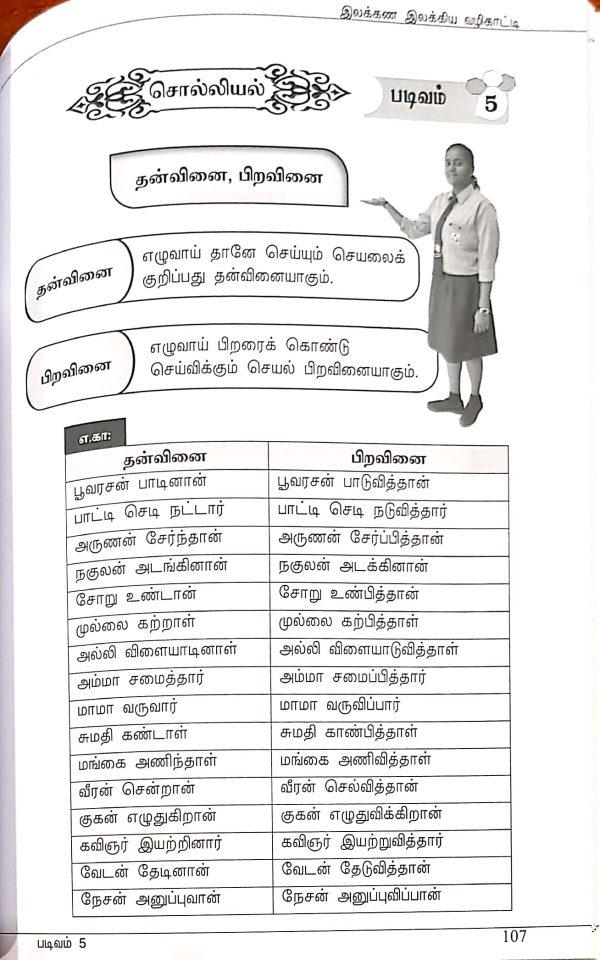 இலக்கண இலக்கிய வழிகாட்டி
சொல்லியல்
படிவம் 5
தன்வினை, பிறவினை
தன்வினை
எழுவாய் தானே செய்யும் செயலைக்
குறிப்பது தன்வினையாகும்.
பிறவினை
எழுவாய் பிறரைக் கொண்டு
செய்விக்கும் செயல் பிறவினையாகும்.
எ.கா:
தன்வினை பிறவினை
பூவரசன் பாடினான் பூவரசன் பாடுவித்தான்
பாட்டி செடி நட்டார் பாட்டி செடி நடுவித்தார்
அருணன் சேர்ந்தான் அருணன் சேர்ப்பித்தான்
நகுலன் அடங்கினான் நகுலன் அடக்கினான்
சோறு உண்டான் சோறு உண்பித்தான்
முல்லை கற்றாள் முல்லை கற்பித்தாள்
அல்லி விளையாடினாள் அல்லி விளையாடுவித்தாள்
அம்மா சமைத்தார் அம்மா சமைப்பித்தார்
மாமா வருவார் மாமா வருவிப்பார்
சுமதி கண்டாள் சுமதி காண்பித்தாள்
மங்கை அணிந்தாள் மங்கை அணிவித்தாள்
வீரன் சென்றான் வீரன் செல்வித்தான்
குகன் எழுதுகிறான் குகன் எழுதுவிக்கிறான்
கவிஞர் இயற்றினார் கவிஞர் இயற்றுவித்தார்
வேடன் தேடினான் வேடன் தேடுவித்தான்
நேசன் அனுப்புவான் நேசன் அனுப்புவிப்பான்
படிவம் 5 107